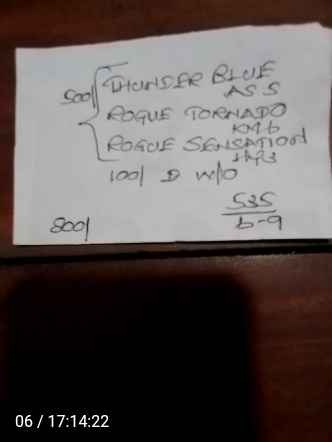 500/ THUNDER BLUE
ASS
ROGUE TORNADO
KMb
ROGUE SENSATION
100/ D W/O
535
6-9
800/
06 / 17:14:22